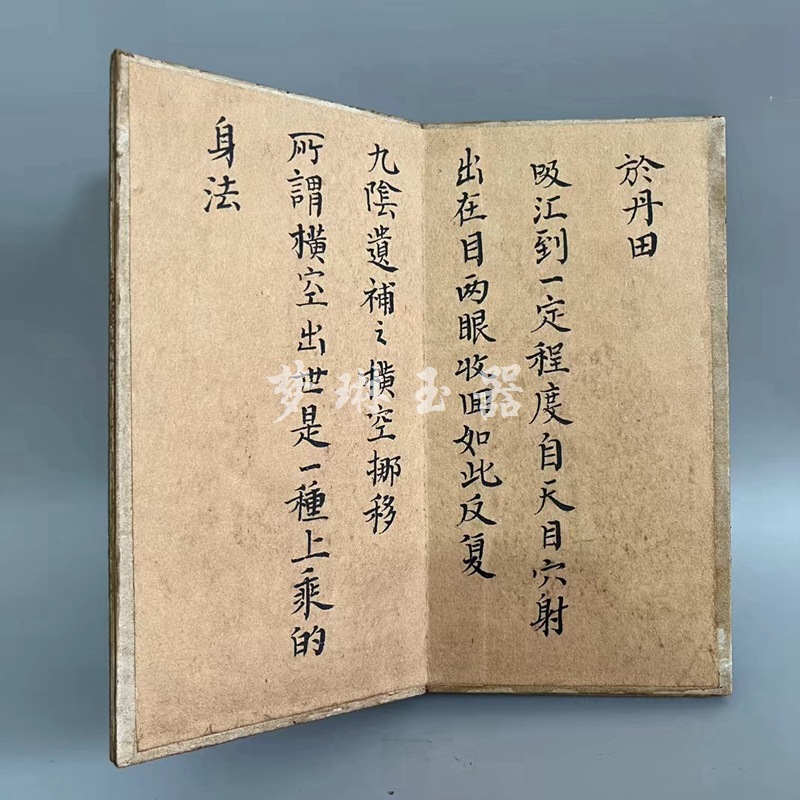 於丹田
吸江到一定程度自天目穴射
出在目两眼收回如此反复
九陰遺補之橫空挪移
所謂橫空出世是一種上乘的
身法
梦琳玉器